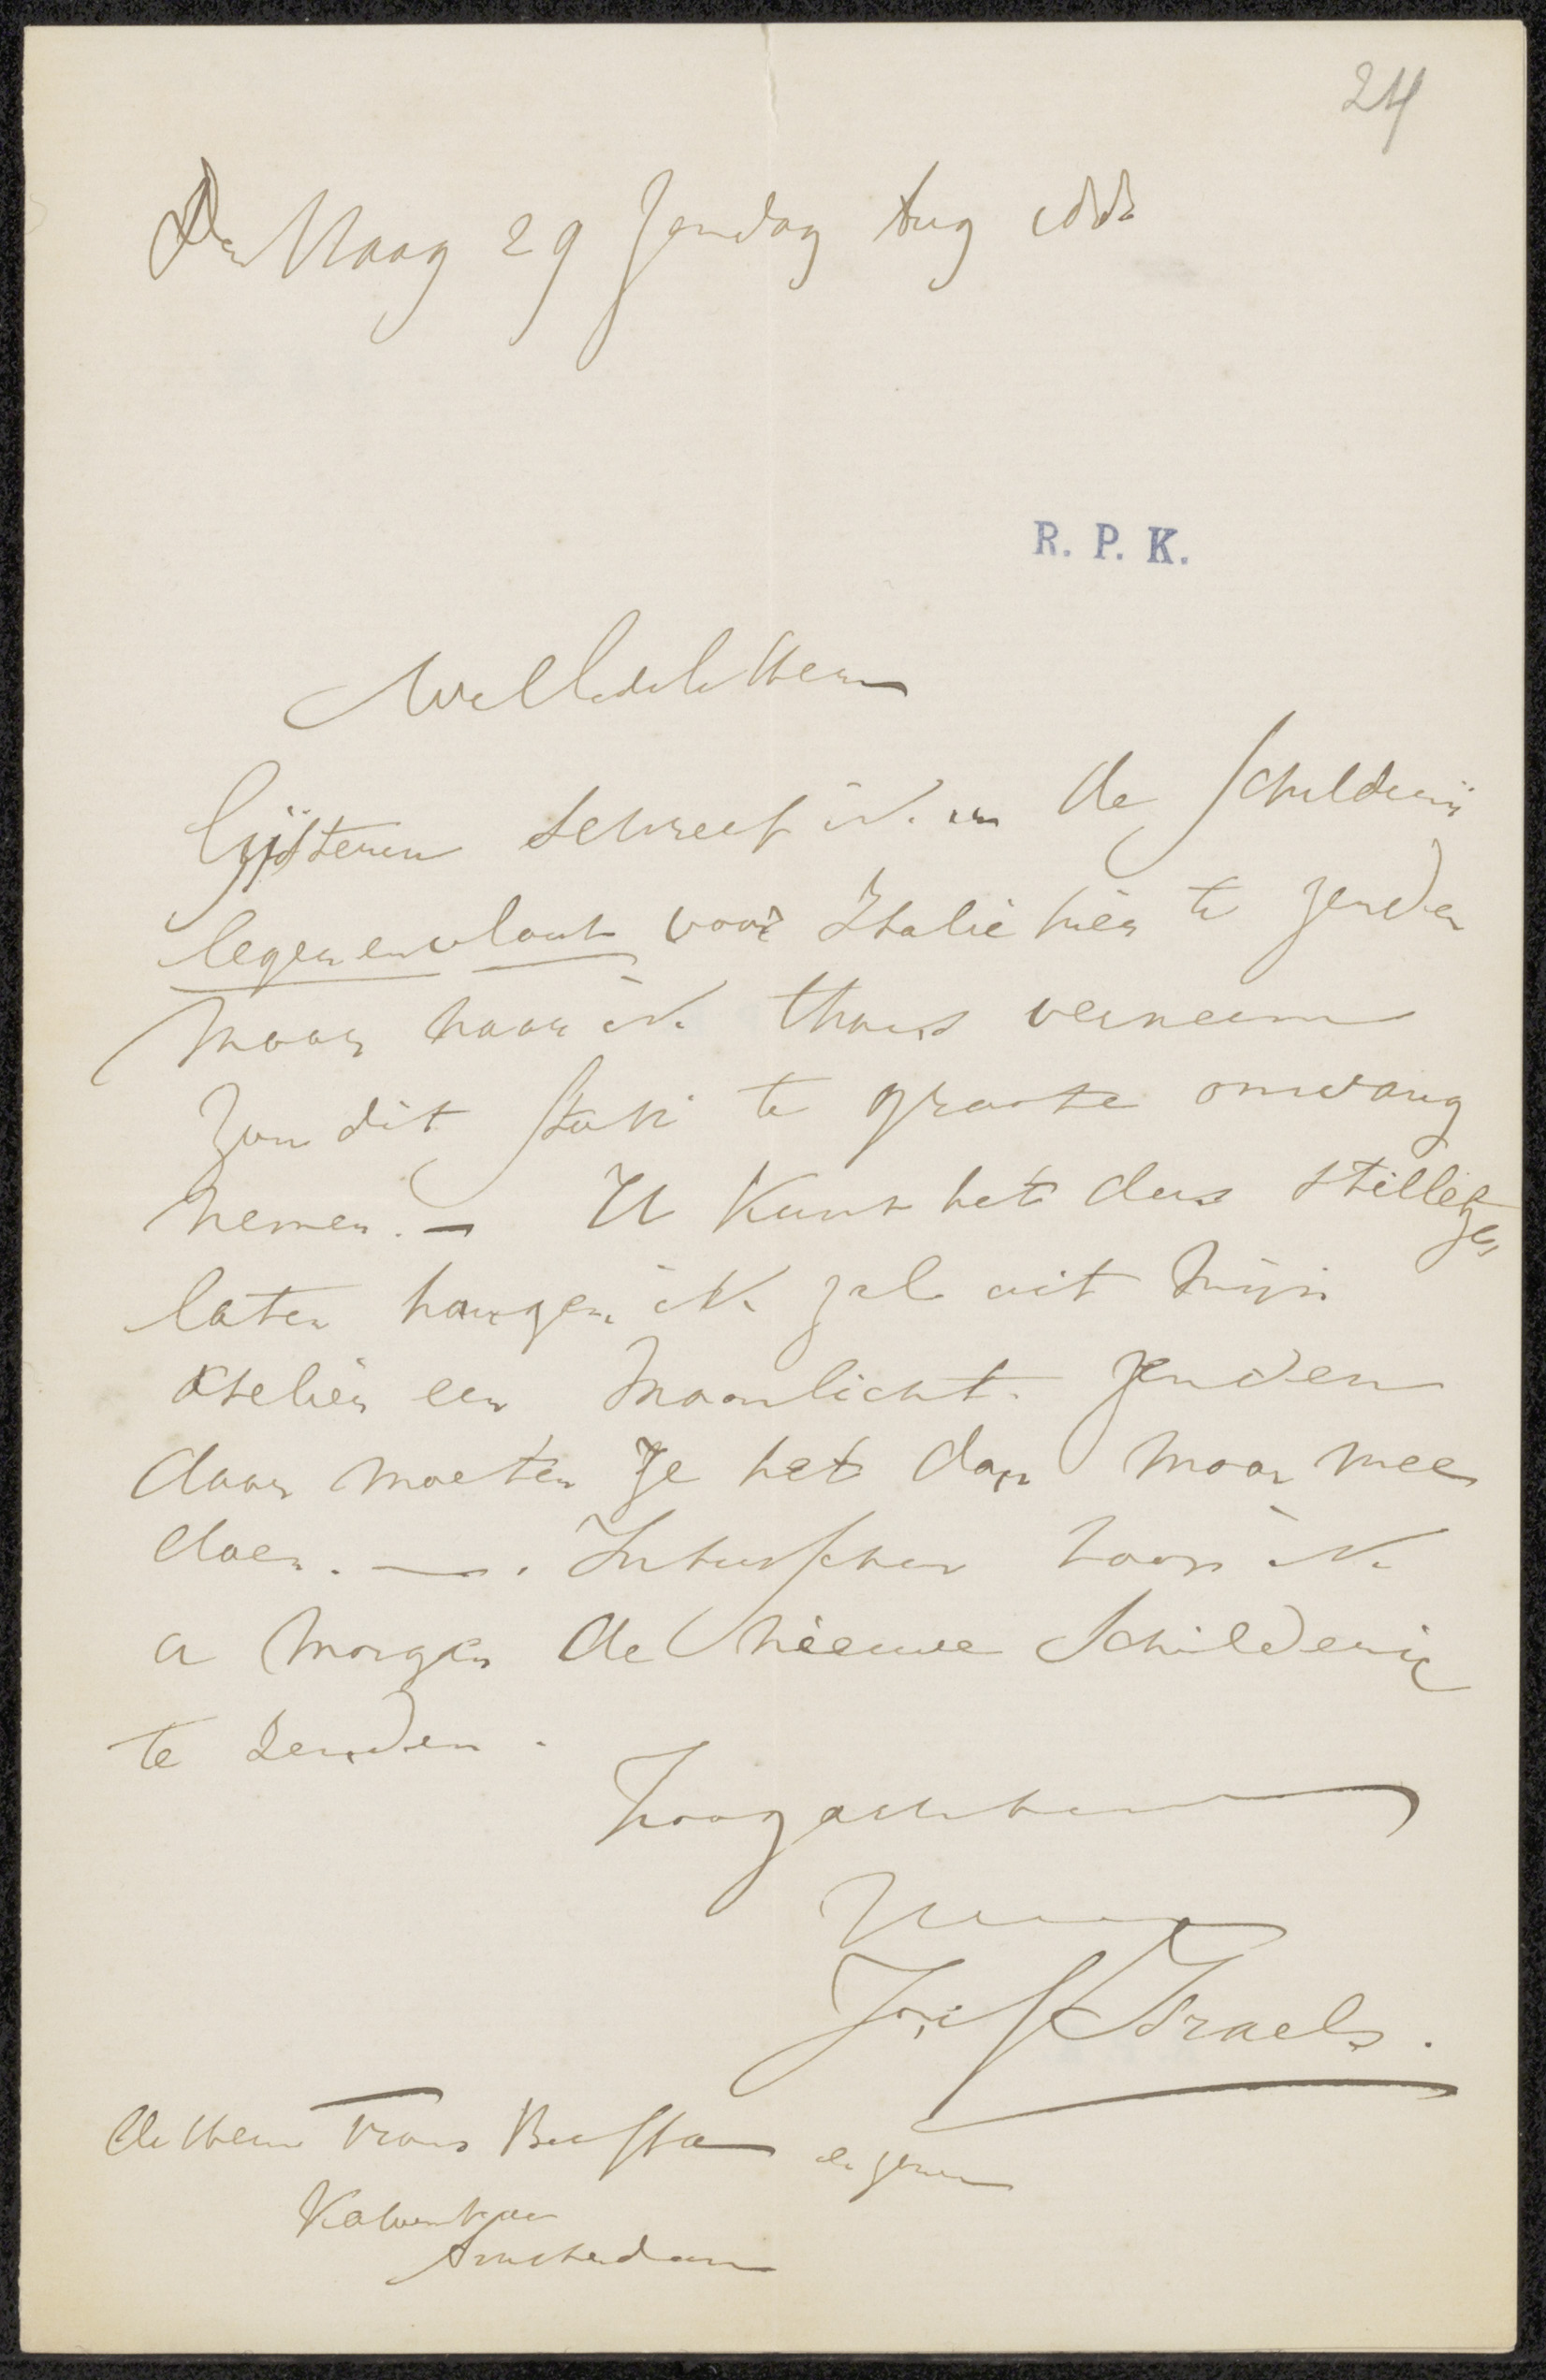 24
Den Haag 29 Zondag Aug
R. P. K.
WelEdele Heer
Gijsteren schreef ik u de Schilderij
legen en vloot voor Italie hier te zenden
maar naar ik thuis verneem
zou dit stuk te groote omvang
nemen. — U kunt het dus stilletjes
laten hangen ik zal uit mijn
atelier een maanlicht zenden
daar moeten ze het dan maar mee
doen. — . Intusschen hoop ik
u morgen de nieuwe Schilderij
te zenden.
hoogachtend
Jozef Israels.
de Heer Frans Buffa en zonen
Kalverstraat
Amsterdam